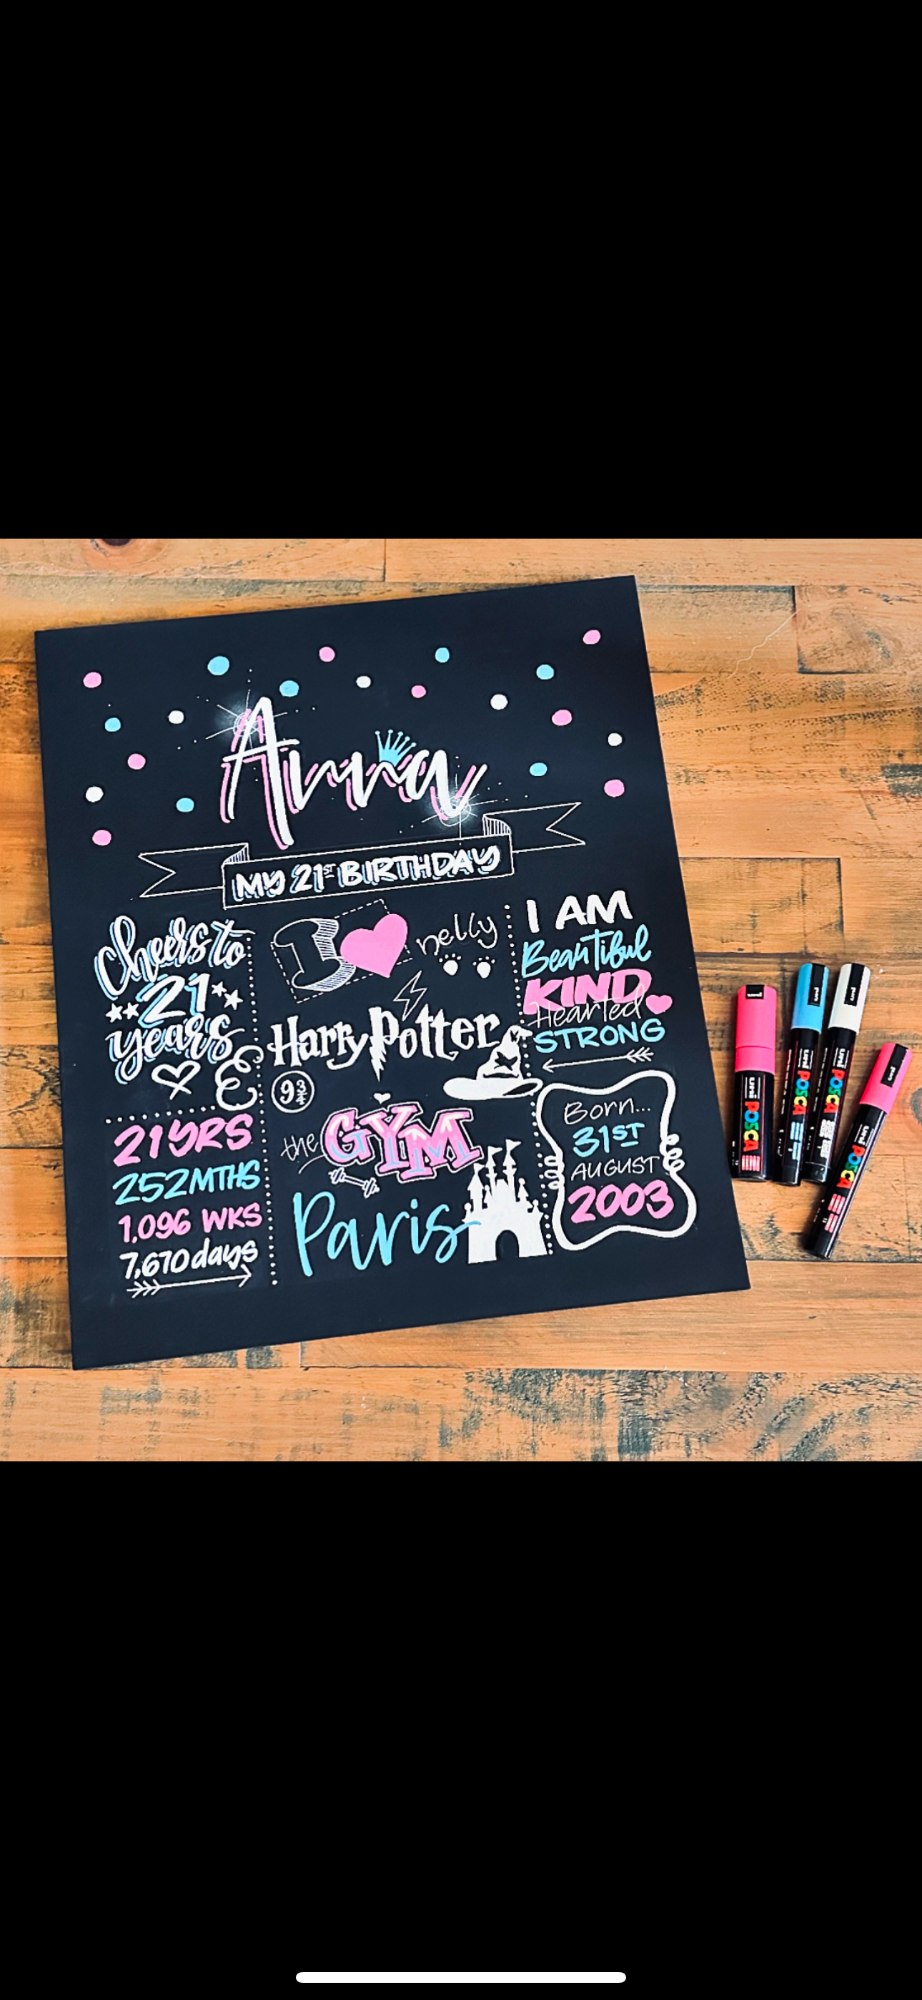 Anna
MY 21ST BIRTHDAY
Cheers to
21
years
21 YRS
252 MTHS
1,096 WKS
7,670 days
I nelly
Harry Potter
9 3/4
the GYM
Paris
I AM
Beautiful
KIND
Hearted
STRONG
Born...
31ST
AUGUST
2003
uni POSCA
uni POSCA
uni POSCA
uni POSCA